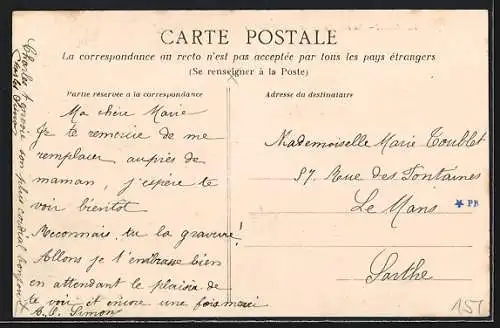 CARTE POSTALE
La correspondance au recto n'est pas acceptée par tous les pays étrangers
(Se renseigner à la Poste)
Partie réservée à la correspondance
Ma chère Marie
Je te remercie de me
remplacer auprès de
maman, j'espère te
voir bientôt
Reconnais-tu la gravure!
Allons je t'embrasse bien
en attendant le plaisir de
te voir et encore une fois merci
Simon
Charles
son plus cordial bonjour
Charles Simon
Adresse du destinataire
Mademoiselle Marie Toublet
57 Rue des Fontaines
Le Mans
Sarthe
* PB
151